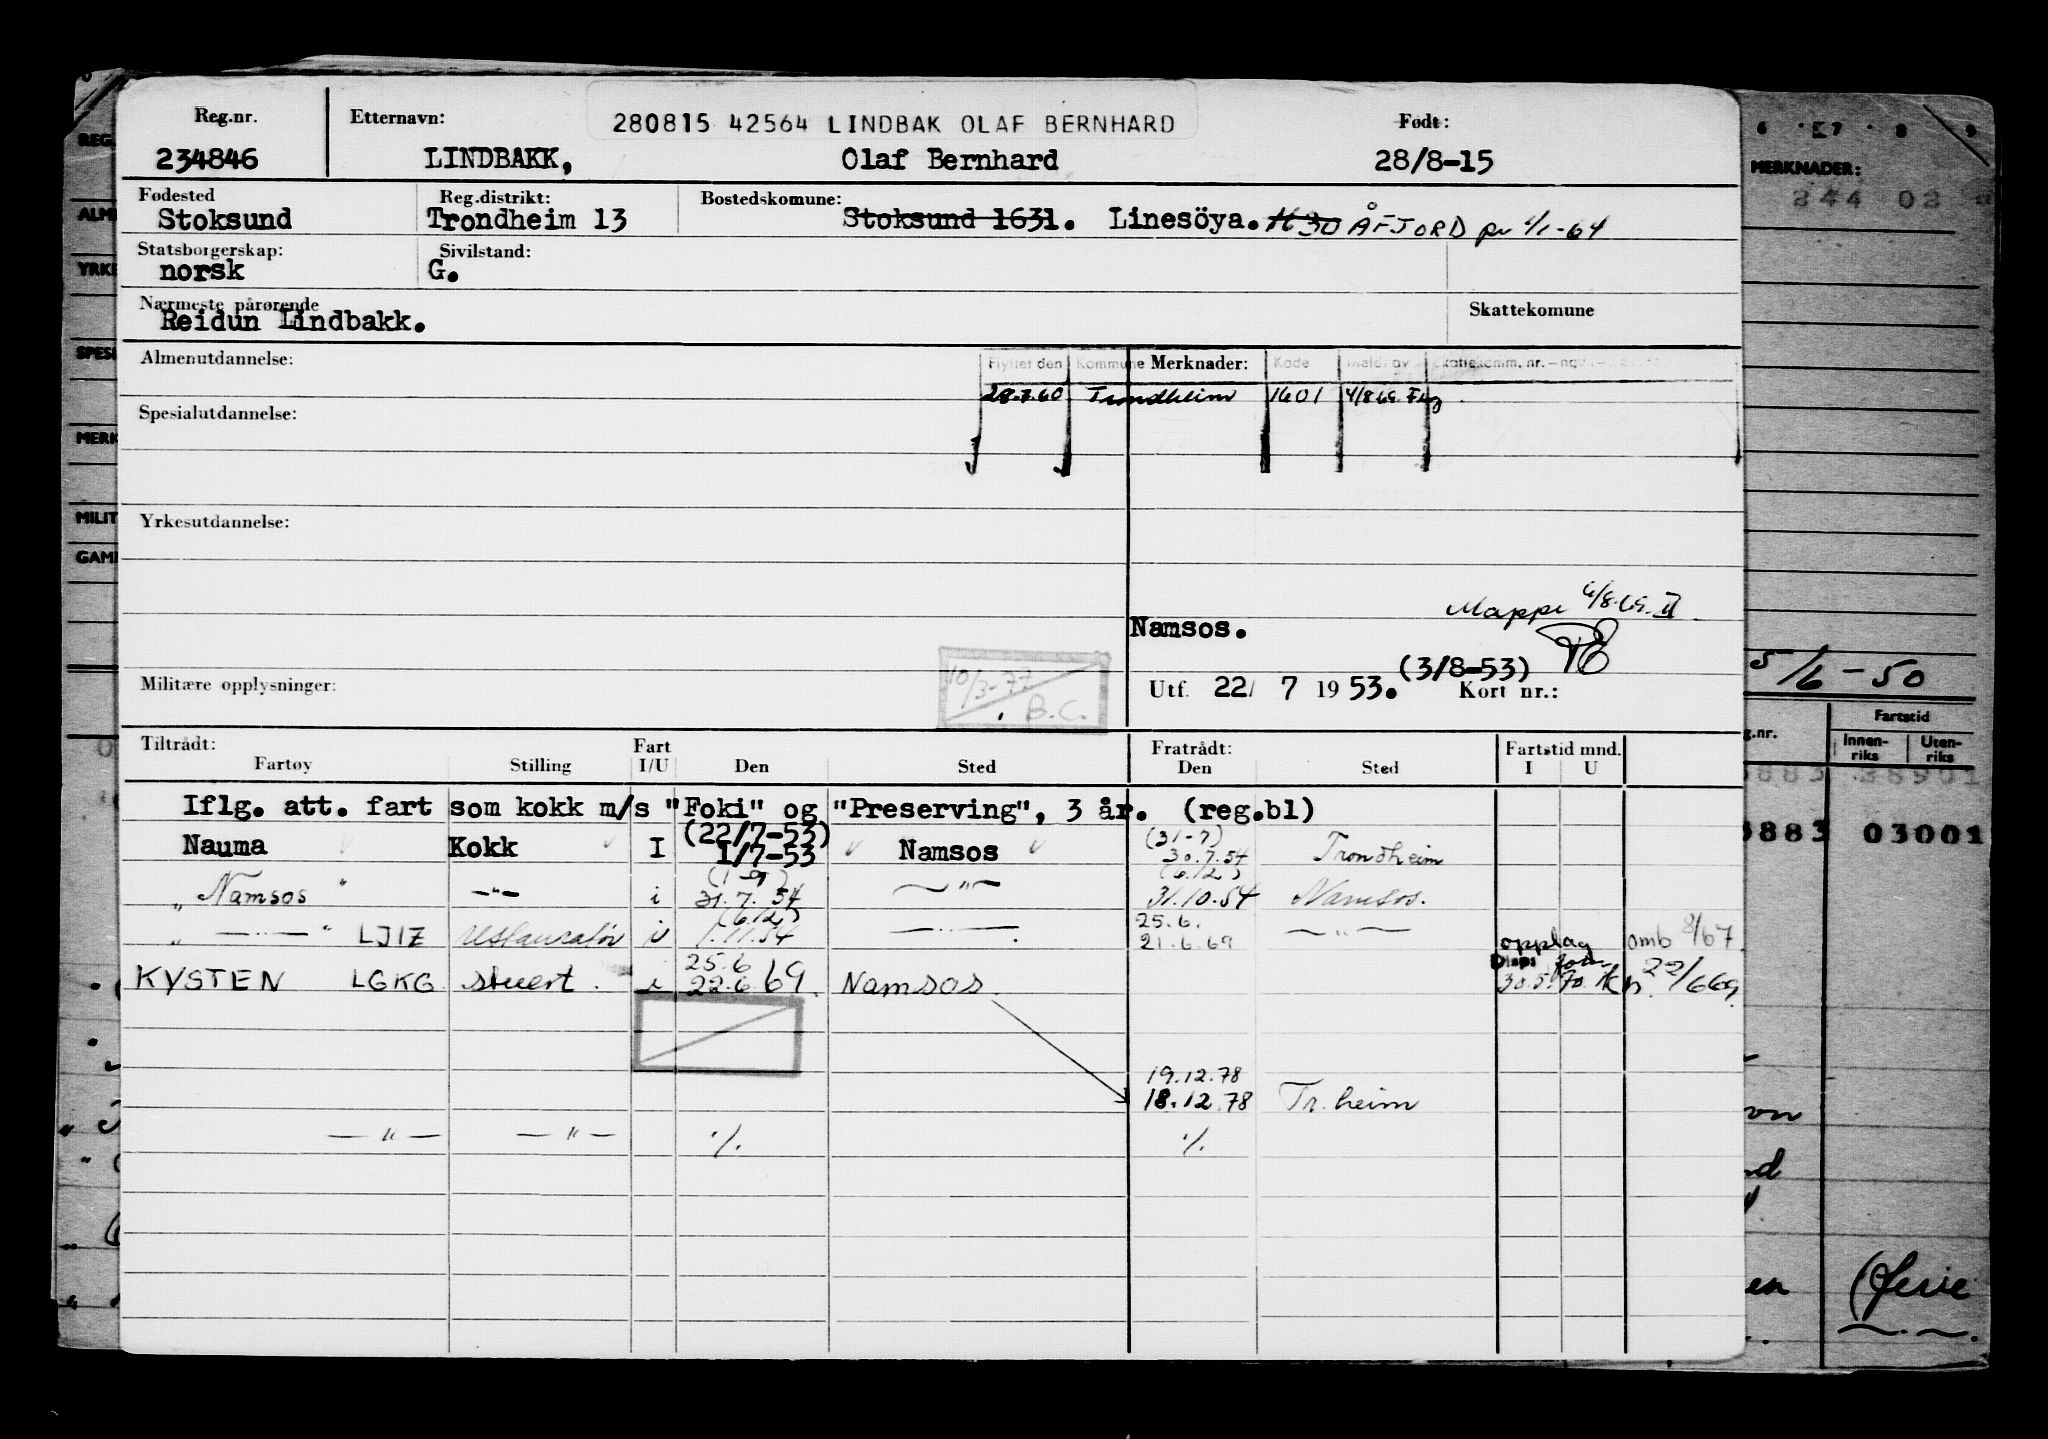 Reg.nr. Etternavn: 280815 42564 LINDBAK OLAF BERNHARD Født:
234846 LINDBAKK, Olaf Bernhard 28/8-15
Fødested Reg.distrikt: Bostedskomune:
Stoksund Trondheim 13 Stoksund 1631. Linesöya. 1630 ÅFJORD pr 1/1-64
Statsborgerskap: Sivilstand:
norsk G.
Nærmeste pårørende Skattekomune
Reidun Lindbakk.
Almenutdannelse: Flyttet den Kommune Merknader: Kode
28.7.60 Trondheim 1601 4/8 69
Spesialutdannelse:
Yrkesutdannelse:
Mappe 4/8.69. II
Namsos.
(3/8-53)
Militære opplysninger: 10/3-77 B.C. Utf. 22/ 7 1953. Kort nr.:
Tiltrådt: Fart Fratrådt: Fartstid mnd.
Fartøy Stilling I/U Den Sted Den Sted I U
Iflg. att. fart som kokk m/s "Foki" og "Preserving", 3 år. (reg.bl)
(22/7-53) (31-7)
Nauma Kokk I 1/7-53 Namsos 30.7.54 Trondheim
(1-9) (6.12)
" Namsos " —"— i 31.7.54 —"— 31.10.54 Namsos.
(6.12) 25.6.
" —"— " LJIZ restauratør i 1.11.54 —"— 21.6.69 —"— opplag omb 8/67
25.6
KYSTEN LGKG stuert i 22.6.69 Namsos. 30.5.70 22/6 69
19.12.78
18.12.78 Tr.heim
—"— —"— ./. ./.
REG.
ALM
YRKE
SPESI
MERK
MILIT
GAM
6 7 8 9
MERKNADER:
244 02
5/6-50
g.nr. Fartstid
Innen-riks Uten-riks
8883 38901
8883 03001